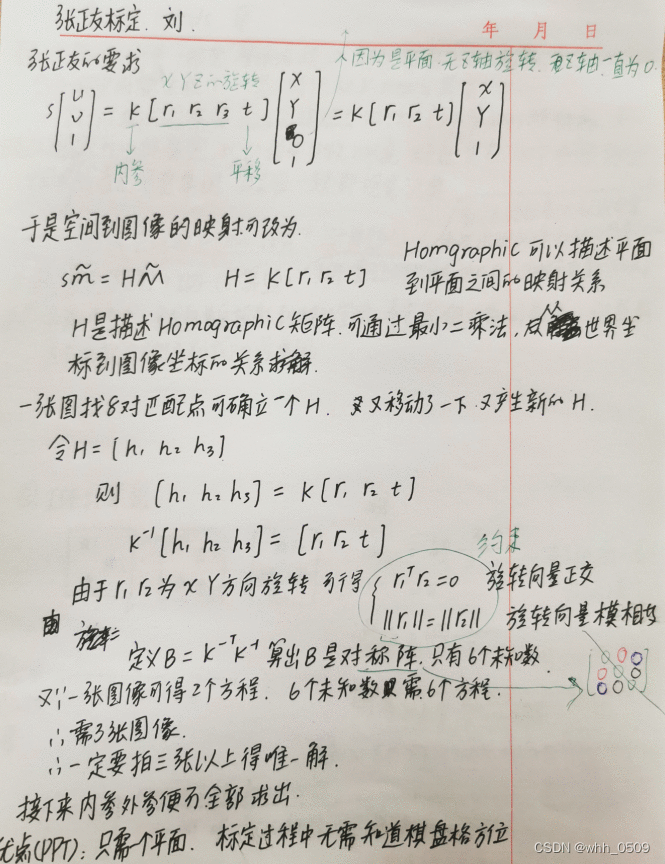 张正友标定. 刘.
年 月 日
张正友的要求
因为是平面.无Z轴旋转. Z轴一直为0.
XYZ的旋转
s[u v 1] = K[r₁ r₂ r₃ t][X Y 0 1] = K[r₁ r₂ t][X Y 1]
内参 平移
于是空间到图像的映射可改为.
sm̃ = HM̃ H = K[r₁ r₂ t]
Homgraphic 可以描述平面
到平面之间的映射关系
H是描述Homographic矩阵.可通过最小二乘法, 从世界坐
标到图像坐标的关系求解.
一张图找8对匹配点可确立一个H. 又移动了一下.又产生新的H.
令H = [h₁ h₂ h₃]
则 [h₁ h₂ h₃] = K[r₁ r₂ t]
K⁻¹[h₁ h₂ h₃] = [r₁ r₂ t]
约束
由于r₁ r₂为XY方向旋转 可得 { r₁ᵀr₂=0 旋转向量正交
||r₁||=||r₂|| 旋转向量模相
由 旋转
定义B = K⁻ᵀK⁻¹ 算出B是对称阵.只有6个未知数.
又∵一张图像可得2个方程. 6个未知数 需6个方程.
∴需3张图像.
∴一定要拍三张以上得唯一解.
接下来内参外参便可全部求出.
优点(PPT): 只需一个平面. 标定过程中无需知道棋盘格方位
CSDN @whh_0509